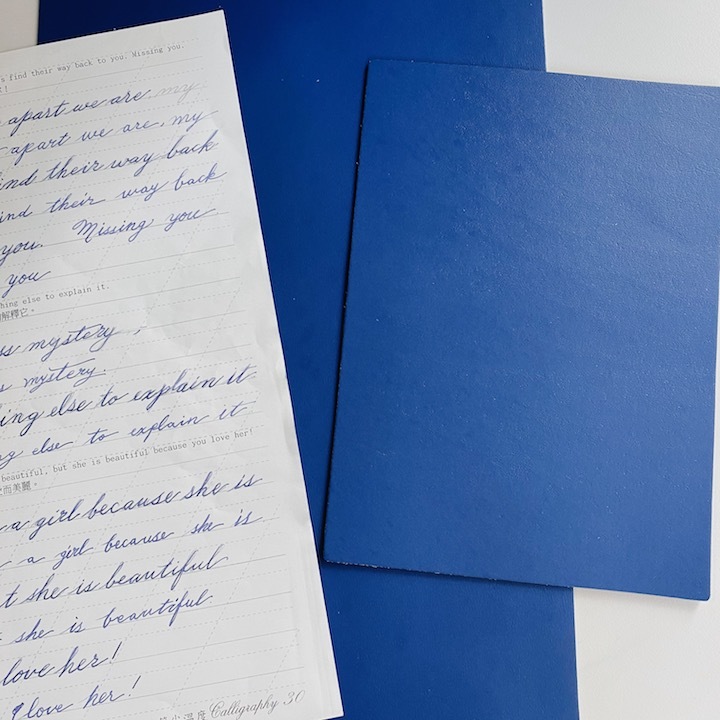 s find their way back to you. Missing you.
apart we are, my
apart we are, my
find their way back
find their way back
you. Missing you
you
thing else to explain it.
解釋它。
mystery ,
mystery.
ing else to explain it
ng else to explain it
beautiful, but she is beautiful because you love her!
而美麗。
a girl because she is
a girl because she is
t she is beautiful
she is beautiful
love her!
I love her!
小温度 Calligraphy 30